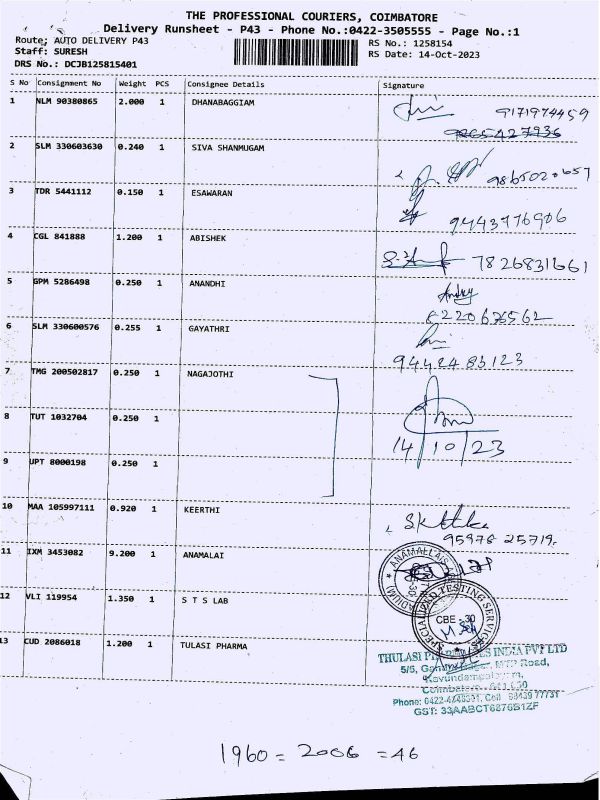 THE PROFESSIONAL COURIERS, COIMBATORE
Delivery Runsheet - P43 - Phone No.:0422-3505555 - Page No.:1
Route: AUTO DELIVERY P43
RS No.: 1258154
Staff: SURESH
RS Date: 14-Oct-2023
DRS No.: DCJB125815401
S No Consignment No Weight PCS Consignee Details Signature
1 NLM 90380865 2.000 1 DHANABAGGIAM
9171974459
2 SLM 330603630 0.240 1 SIVA SHANMUGAM
9865020657
3 TDR 5441112 0.150 1 ESAWARAN
9443976906
4 CGL 841888 1.200 1 ABISHEK
7826831661
5 GPM 5286498 0.250 1 ANANDHI
8220676562
6 SLM 330600576 0.255 1 GAYATHRI
9442483123
7 TMG 200502817 0.250 1 NAGAJOTHI
8 TUT 1032704 0.250 1
14/10/23
9 UPT 8000198 0.250 1
10 MAA 105997111 0.920 1 KEERTHI
95978 25719.
11 IXM 3453082 9.200 1 ANAMALAI
12 VLI 119954 1.350 1 S T S LAB
CBE - 30
13 CUD 2086018 1.200 1 TULASI PHARMA
THULASI INDIA PVT LTD
5/5, MTP Road,
Phone: Cell 98439 77731
GST: 33AABCT6276B1ZF
1960 = 2006 = 46